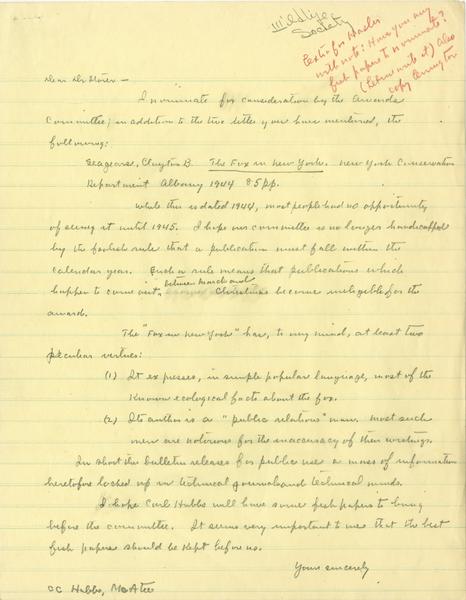 Wildlife
Society
Extra for Hasler
with note: Have you any
fish papers to nominate?
(Return write it) Also
copy Errington
Dear Dr Storer –
I nominate for consideration by the Awards
Committee, in addition to the two titles you have mentioned, the
following:
Seagears, Clayton B. The Fox in New York. New York Conservation
Department Albany 1944 85 pp.
While this is dated 1944, most people had no opportunity
of seeing it until 1945. I hope our committee is no longer handicapped
by the foolish rule that a publication must fall within the
calendar year. Such a rule means that publications which
between March and
happen to come out Christmas become ineligible for the
award.
The "Fox in New York" has, to my mind, at least two
peculiar virtues:
(1) It expresses, in simple popular language, most of the
known ecological facts about the fox.
(2) Its author is a "public relations" man. Most such
men are notorious for the inaccuracy of their writings.
In short this bulletin releases for public use a mass of information
heretofore locked up in technical journals and technical minds.
I hope Carl Hubbs will have some fish papers to bring
before the committee. It seems very important to me that the best
fish papers should be kept before us.
Yours sincerely
CC Hubbs, McAtee